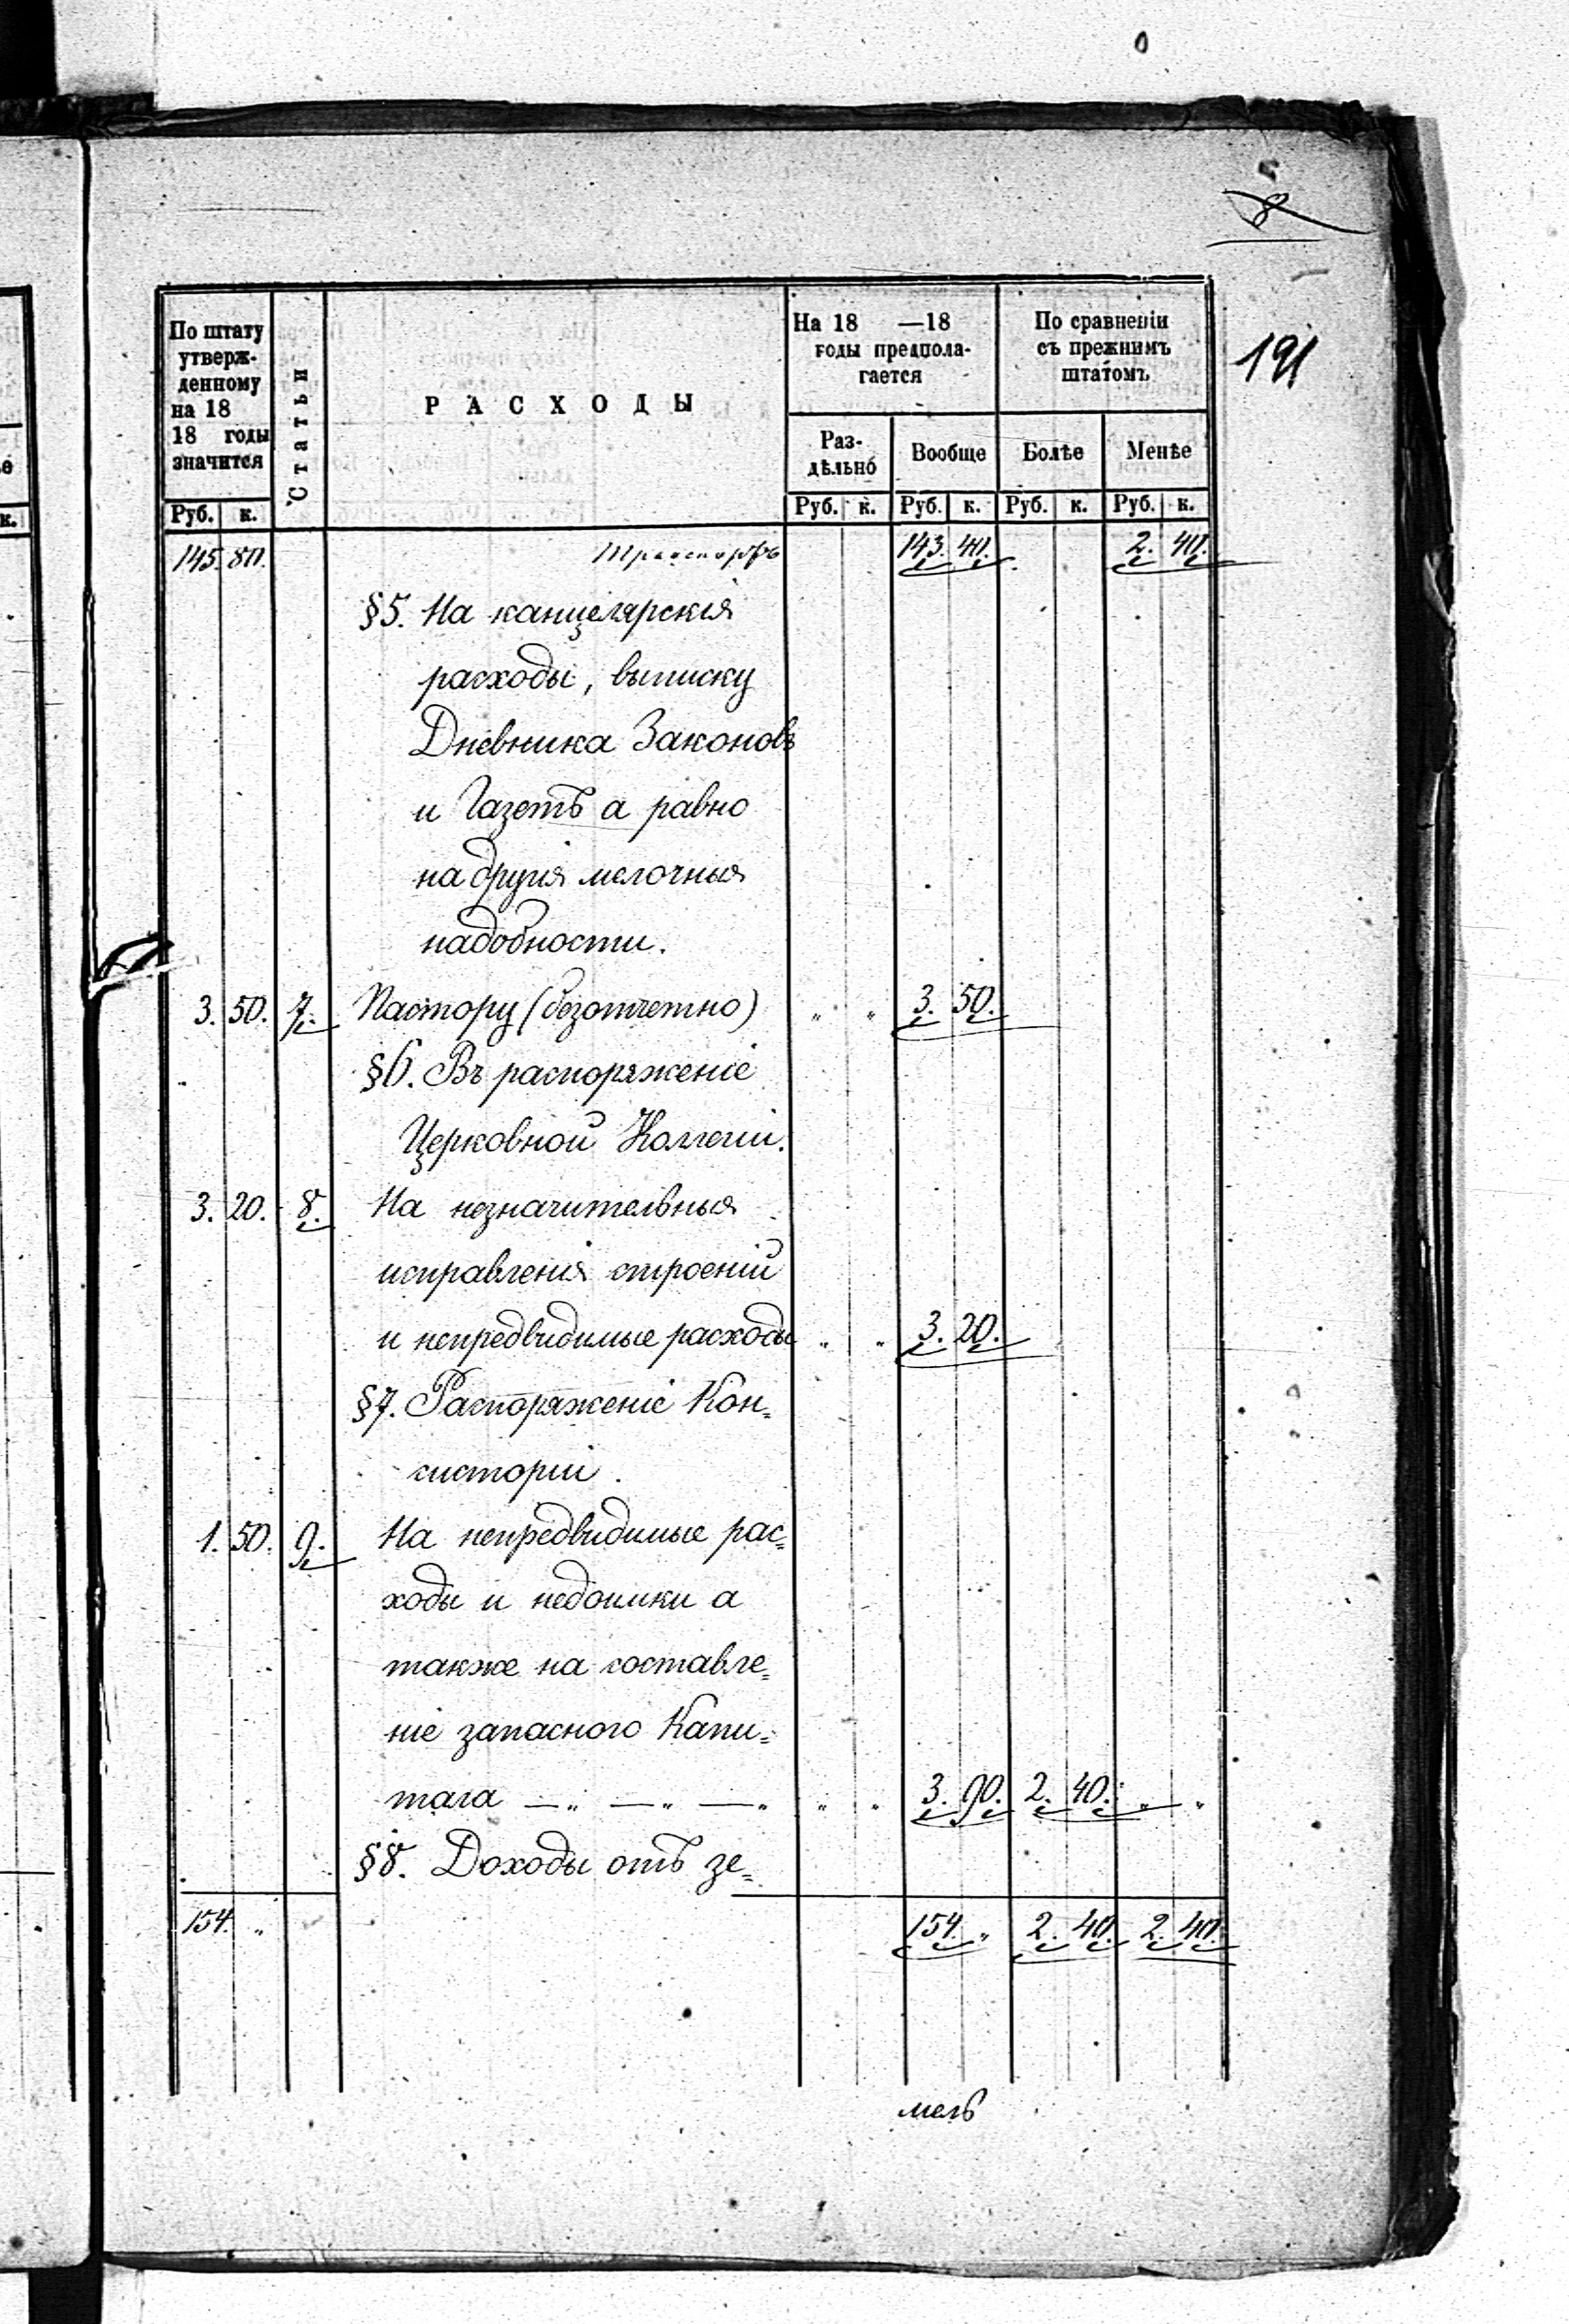 8
191
По штату утверж-денному на 18 18 годы значится
Статьи
РАСХОДЫ
На 18 —18 годы предпола-гается
По сравненіи съ прежнимъ штатомъ
Раз-дѣльно
Вообще
Болѣе
Менѣе
Руб. к. Руб. к. Руб. к. Руб. к. Руб. к.
145. 80. Транспортъ 143. 40. 2. 40.
§5. На канцелярскія
расходы, выписку
Дневника Законовъ
и Газетъ а равно
на другія мелочныя
надобности.
3. 50. 7. Пастору (безотчетно) „ „ 3. 50.
§6. Въ распоряженіе
Церковной Коллегіи.
3. 20. 8. На незначительныя
исправленія строеній
и непредвидимые расходы „ „ 3. 20.
§7. Распоряженіе Кон=
систоріи.
1. 50. 9. На непредвидимые рас=
ходы и недоимки а
также на составле=
ніе запасного Капи=
тала —„ —„ —„ „ „ 3. 90. 2. 40. „ „
§8. Доходы отъ зе=
154. „ 154. „ 2. 40. 2. 40.
мель